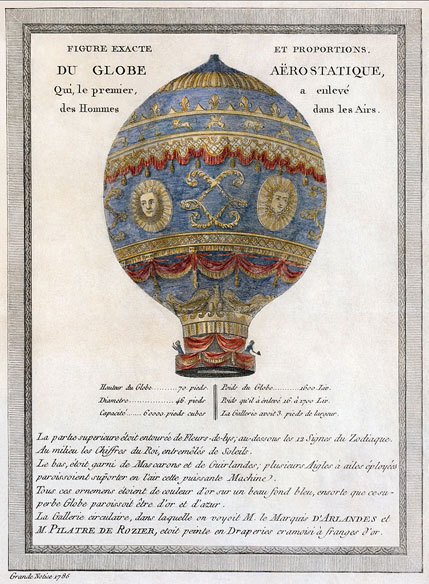 FIGURE EXACTE ET PROPORTIONS,
DU GLOBE AËROSTATIQUE,
Qui, le premier, a enlevé
des Hommes dans les Airs.
Hauteur du Globe..........70 pieds
Diametre..................46. pieds
Capacité......60000 pieds cubes
Poids du Globe..........1600 Liv.
Poids qu'il à énlevé 16 à 1700 Liv.
La Gallerie avoit 3. pieds de largeur.
La partie superieure étoit entourée de Fleurs-de-lys, au-dessous les 12 Signes du Zodiaque.
Au milieu les Chiffres du Roi, entremêlés de Soleils.
Le bas, étoit garni de Mascarons et de Guirlandes; plusieurs Aigles a ailes éployées
paroissoient supporter en l'air cette puissante Machine.
Tous ces ornemens étoient de couleur d'or sur un beau fond bleu, ensorte que ce su-
perbe Globe paroissoit être d'or et d'azur.
La Gallerie circulaire, dans laquelle on voyoit M. le Marquis D'ARLANDES et
M. PILATRE DE ROZIER, etoit peinte en Draperies cramoisi à franges d'or.
Grande Notice 1786